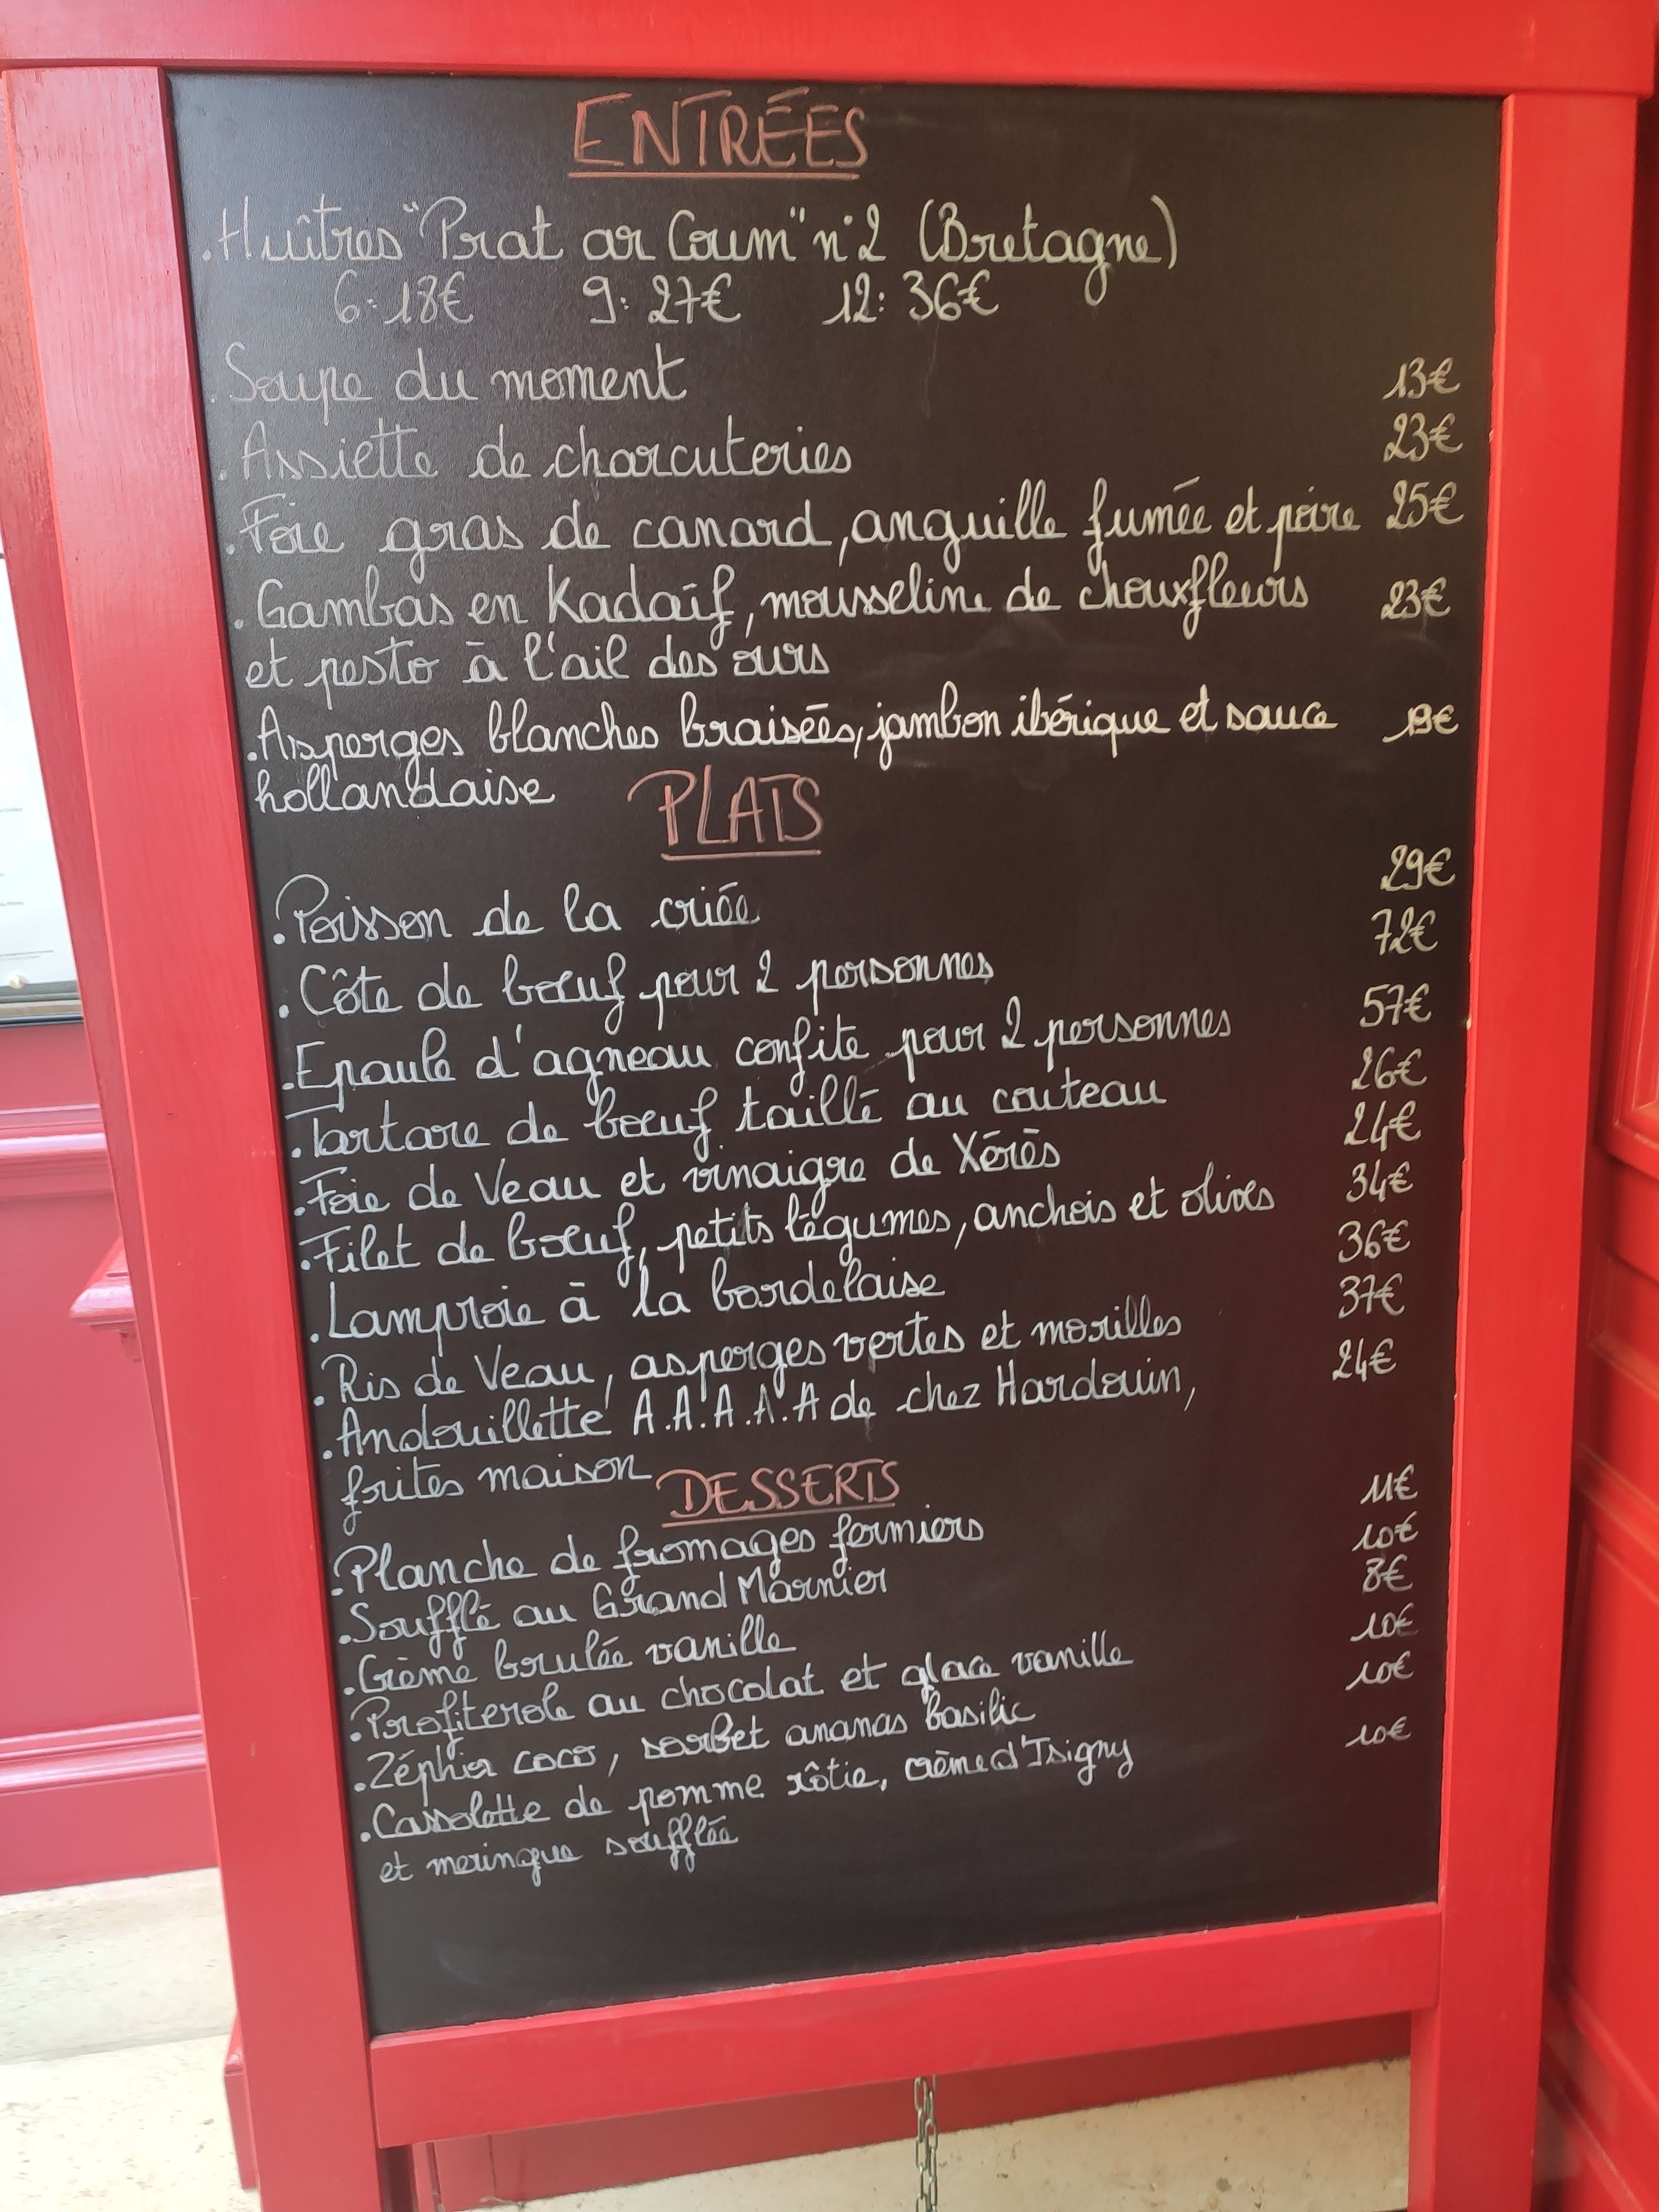 ENTRÉES
. Huîtres "Prat ar Coum" n°2 (Bretagne)
6: 18€ 9: 27€ 12: 36€
. Soupe du moment 13€
. Assiette de charcuteries 23€
. Foie gras de canard, anguille fumée et poire 25€
. Gambas en Kadaïf, mousseline de chouxfleurs 23€
et pesto à l'ail des ours
. Asperges blanches braisées, jambon ibérique et sauce 19€
hollandaise
PLATS
. Poisson de la criée 29€
. Côte de bœuf pour 2 personnes 72€
. Epaule d'agneau confite pour 2 personnes 57€
. Tartare de bœuf taillé au couteau 26€
. Foie de Veau et vinaigre de Xérès 24€
. Filet de bœuf, petits légumes, anchois et olives 34€
. Lamproie à la bordelaise 36€
. Ris de Veau, asperges vertes et morilles 37€
. Andouillette A.A.A.A.A de chez Hardouin, 24€
frites maison
DESSERTS
. Planche de fromages fermiers 11€
. Soufflé au Grand Marnier 10€
. Crème brulée vanille 8€
. Profiterole au chocolat et glace vanille 10€
. Zéphir coco, sorbet ananas basilic 10€
. Cassolette de pomme rôtie, crème d'Isigny 10€
et meringue soufflée